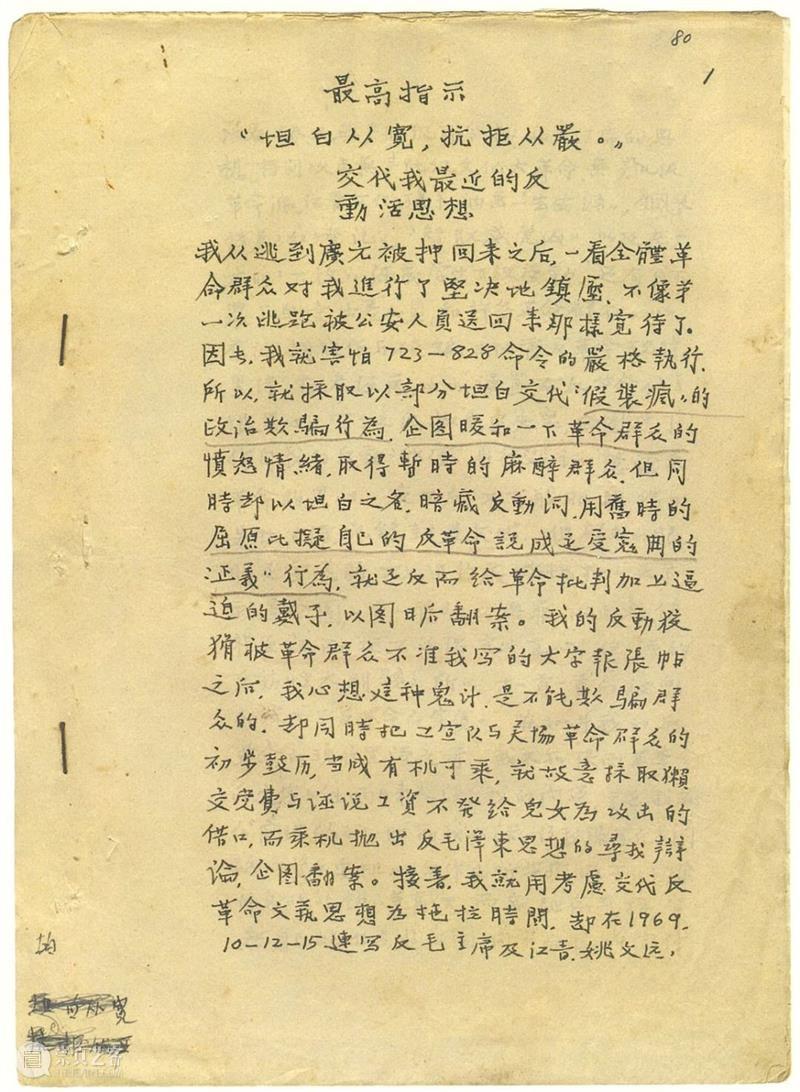 80
1
最高指示
“坦白从宽，抗拒从嚴。”
交代我最近的反
動活思想
我从逃到廣元被押回来之后，一看全體革
命群众对我進行了堅决地鎮壓，不像第
一次逃跑被公安人員送回来那樣宽待了。
因为，我就害怕723—828命令的嚴格執行，
所以，就採取以部分坦白交代“假裝瘋”的
政治欺騙行為，企图暖和一下革命群众的
憤怒情緒，取得暫時的麻醉群众，但同
時却以坦白之名，暗藏反動词，用舊時的
屈原比擬自己的反革命説成是受寃囯的
“正義”行為，就是反而给革命批判加上逼
迫的戴子，以图日后翻案。我的反動狡
猾被革命群众不准我写的大字報張帖
之后，我心想这种鬼计，是不能欺騙群
众的，却同時把工宣队与美場革命群众的
初步鼓历，当成有机可乘，就故意採取
交党費与诬说工資不發给兒女為攻击的
借口，而乘机抛出反毛澤東思想的尋找辯
論，企图翻案。接着，我就用考慮交代反
革命文藝思想为拖拉時間，却在1969，
10—12—15連写反毛主席及江青、姚文远，
宽